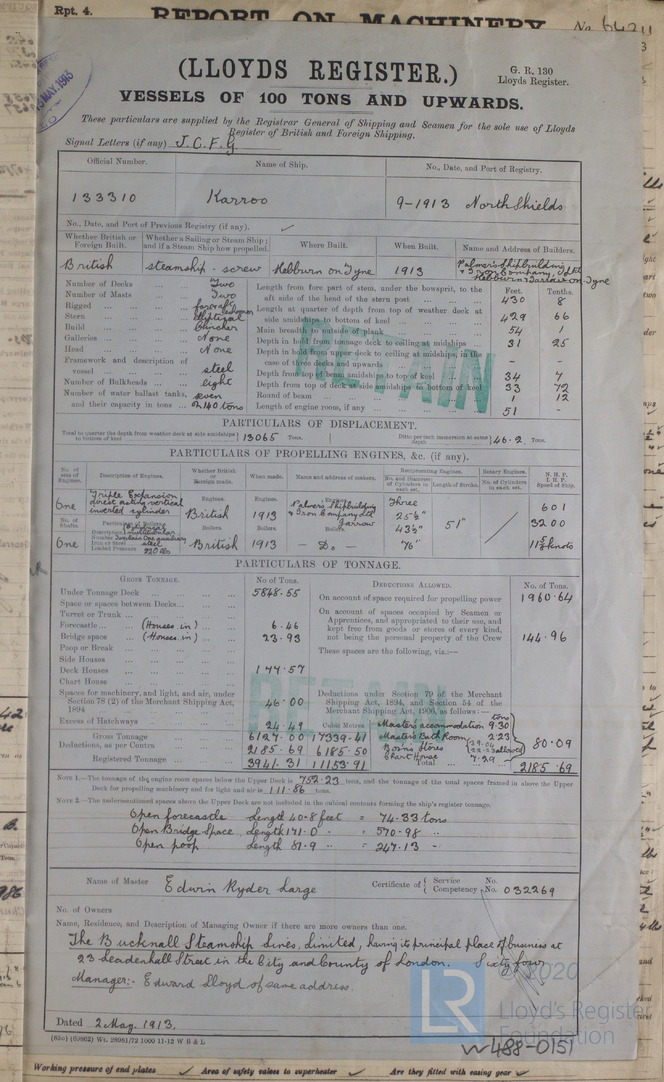 Rpt. 4.
REPORT ON MACHINERY
No. 64211
(LLOYDS REGISTER.)
G. R. 130
Lloyds Register.
VESSELS OF 100 TONS AND UPWARDS.
These particulars are supplied by the Registrar General of Shipping and Seamen for the sole use of Lloyds
Register of British and Foreign Shipping.
Signal Letters (if any) J.C.F.G.
Official Number. Name of Ship. No., Date, and Port of Registry.
133310 Karroo 9-1913 North Shields
No., Date, and Port of Previous Registry (if any).
Whether British or Foreign Built. Whether a Sailing or Steam Ship; and if a Steam Ship how propelled. Where Built. When Built. Name and Address of Builders.
British steamship - screw Hebburn on Tyne 1913 Palmers Shipbuilding & Iron Company, Ltd Hebburn & Jarrow on Tyne
Number of Decks Two
Number of Masts Two
Rigged fore & aft schooner
Stern Elliptical
Build Clincher
Galleries None
Head None
Framework and description of vessel steel
Number of Bulkheads eight
Number of water ballast tanks, and their capacity in tons seven 2140 tons
Feet. Tenths.
Length from fore part of stem, under the bowsprit, to the aft side of the head of the stern post 430 8
Length at quarter of depth from top of weather deck at side amidships to bottom of keel 429 66
Main breadth to outside of plank 54 1
Depth in hold from tonnage deck to ceiling at midships 31 25
Depth in hold from upper deck to ceiling at midships, in the case of three decks and upwards - -
Depth from top of beam amidships to top of keel 34 7
Depth from top of deck at side amidships to bottom of keel 33 72
Round of beam 1 12
Length of engine room, if any 51 -
RETAIN
PARTICULARS OF DISPLACEMENT.
Total to quarter the depth from weather deck at side amidships to bottom of keel 13065 Tons.
Ditto per inch immersion at same depth 46.2 Tons.
PARTICULARS OF PROPELLING ENGINES, &c. (if any).
No. of sets of Engines. Description of Engines. Whether British or Foreign made. When made. Name and address of makers. Reciprocating Engines. Rotary Engines. N. H. P. I. H. P. Speed of Ship.
No. and Diameter of Cylinders in each set. Length of Stroke. No. of Cylinders in each set.
One Triple Expansion direct acting vertical inverted cylinder
Engines. British
Engines. 1913
Engines. Palmers Shipbuilding & Iron Company Ltd Jarrow
Three 25½" 43½" 76"
51"
601
3200
11½ knots
No. of Shafts. One
Particulars of Boilers
Number Two main One auxiliary
Iron or Steel steel
Loaded Pressure 220 lbs
Boilers. British
Boilers. 1913
Boilers. - Do. -
PARTICULARS OF TONNAGE.
GROSS TONNAGE. No. of Tons. DEDUCTIONS ALLOWED. No. of Tons.
Under Tonnage Deck 5848.55
Space or spaces between Decks
Turret or Trunk
Forecastle (Houses in) 6.46
Bridge space (Houses in) 23.93
Poop or Break
Side Houses
Deck Houses 177.57
Chart House
Spaces for machinery, and light, and air, under Section 78 (2) of the Merchant Shipping Act, 1894 46.00
Excess of Hatchways 24.49
Cubic Metres
Gross Tonnage 6127.00 17339.41
Deductions, as per Contra 2185.69 6185.50
Registered Tonnage 3941.31 11153.91
On account of space required for propelling power 1960.64
On account of spaces occupied by Seamen or Apprentices, and appropriated to their use, and kept free from goods or stores of every kind, not being the personal property of the Crew 144.96
These spaces are the following, viz.:—
Deductions under Section 79 of the Merchant Shipping Act, 1894, and Section 54 of the Merchant Shipping Act, 1906, as follows:—
tons
Master's accommodation 9.30
Master's Bath Room 2.23
Bosn's Stores allowed
Chart House 7.29
80.09
Total 2185.69
RETAIN
NOTE 1.—The tonnage of the engine room spaces below the Upper Deck is 752.23 tons, and the tonnage of the total spaces framed in above the Upper
Deck for propelling machinery and for light and air is 111.86 tons.
NOTE 2.—The undermentioned spaces above the Upper Deck are not included in the cubical contents forming the ship's register tonnage.
Open forecastle Length 40.8 feet = 74.33 tons
Open Bridge Space, Length 171.0 " = 570.98 "
Open poop Length 87.9 " = 247.13 "
Name of Master Edwin Ryder Large
Certificate of { Service No.
Competency No. 032269
No. of Owners
Name, Residence, and Description of Managing Owner if there are more owners than one.
The Bucknall Steamship Lines, Limited, having its principal place of business at
23 Leadenhall Street in the City and County of London. Sixty four
Manager:- Edward Lloyd of same address.
Dated 2 May. 1913.
(83c) (63862) Wt. 28981/72 1000 11-12 W B & L
LR
© 2020
Lloyd's Register
Foundation
W488-0151
Working pressure of end plates
Area of safety valves to superheater
Are they fitted with easing gear